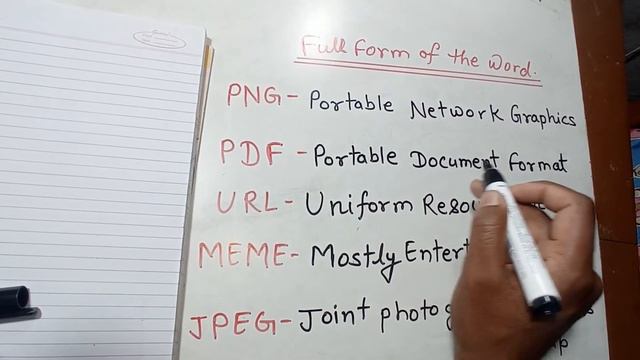 Full form of the Word.
PNG - Portable Network Graphics
PDF - Portable Document format
URL - Uniform
MEME - Mostly
JPEG - Joint